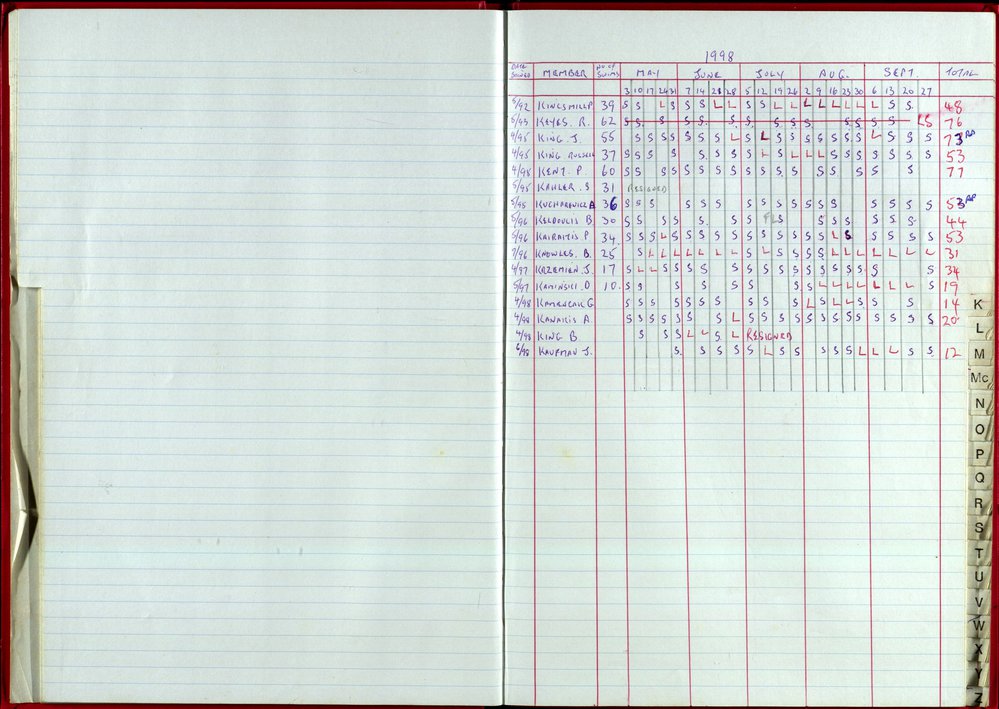 1998
DATE JOINED MEMBER NO. OF SWIMS MAY JUNE JULY AUG. SEPT. TOTAL
3 10 17 24 31 7 14 21 28 5 12 19 26 2 9 16 23 30 6 13 20 27
5/92 KINGSMILL P 39 S S L S S S L L S S L L L L L L L L S S 48
5/93 KEYES. R. 62 LS 76
4/95 KING. J. 55 S S S S S S S L S L S S S S S S S L S S S 73
4/95 KING RUSSELL 37 S S S S S S S S S L S L L L S S S S S S S 53
4/95 KENT. P. 60 S S S S S S S S S S S S S S S S S S 77
5/95 KAHLER. S 31 RESIGNED
5/95 KUCHAREWICZ A 36 S S S S S S S S S S S S S S S S S 53
5/96 KELDOULIS B. 30 S S S S S S S S S S S S S 44
5/96 KAIRAITIS P 34. S S S L S S S S S S S S S S S L S S S S S 53
7/96 KNOWLES. B. 25 S L L L L L L L S L S S S S L L L L L L L 31
4/97 KRZEMIEN. J. 17 S L L S S S S S S S S S S S S S S S S S 34
5/97 KAMINSKI. D 10. S S S S S S S L L L L L L L S 19
4/98 KAMENCAK G S S S S S S S S S S L S L L S S S 14
4/98 KANARIS A. S S S S S S S L S S S S S S S S S S S S S 20
4/98 KING B S S S L L S L RESIGNED
6/98 KAUFMAN J. S S S S S S L S S S S S L L L S S 12
K
L
M
Mc
N
O
P
Q
R
S
T
U
V
W
X
Y
Z